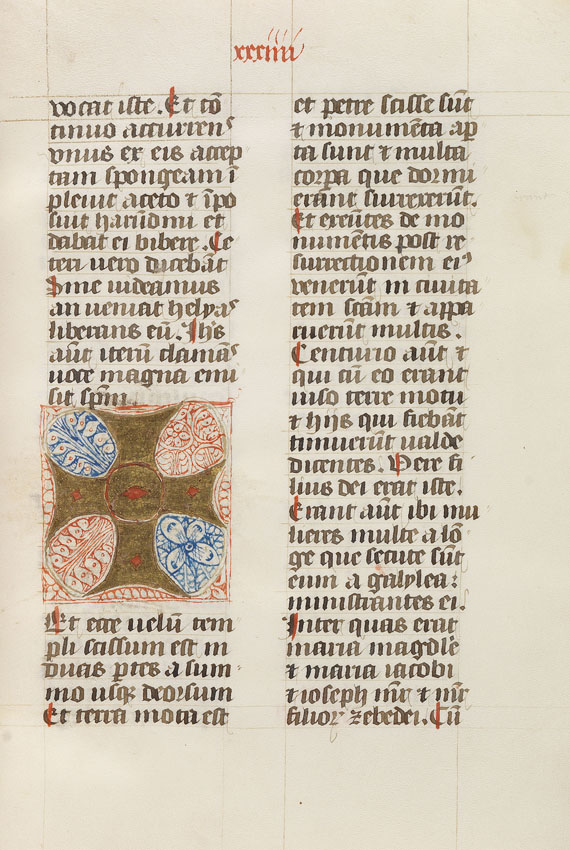 xxxiiii
vocat iste. Et cō
tinuo accurrens
vnus ex eis accep
tam spongeam ī
pleuit aceto et īpo
suit harūdini et
dabat ei bibere. Ce
teri uero dicebāt
Sine uideamus
an ueniat helyas
liberans eū. Ihs
aūt iterū clamās
uoce magna emi
sit spm̄.
Et ecce uelū tem
pli scissum est in
duas ꝑtes a sum
mo usqꝫ deorsum
Et terra mota est
et petre scisse sūt
⁊ monumēta aꝑ
ta sunt ⁊ multa
corꝑa que dormi
erant surrexerūt.
Et exeūtes de mo
numētis post re
surrectionem eiꝰ
venerūt in ciuita
tem scām ⁊ appa
ruerūt multis.
Centurio aūt ⁊
qui cū eo erant
uiso terre motu
⁊ hiis qui fiebāt
timuerūt ualde
dicentes. Vere fi
lius dei erat iste.
Erant aūt ibi mu
lieres multe a lō
ge que secute sūt
eum a galylea:
ministrantes ei.
Inter quas erat
maria magdalē
⁊ maria iacobi
⁊ ioseph mr̄ ⁊ mr̄
filioꝝ zebedei. Cū